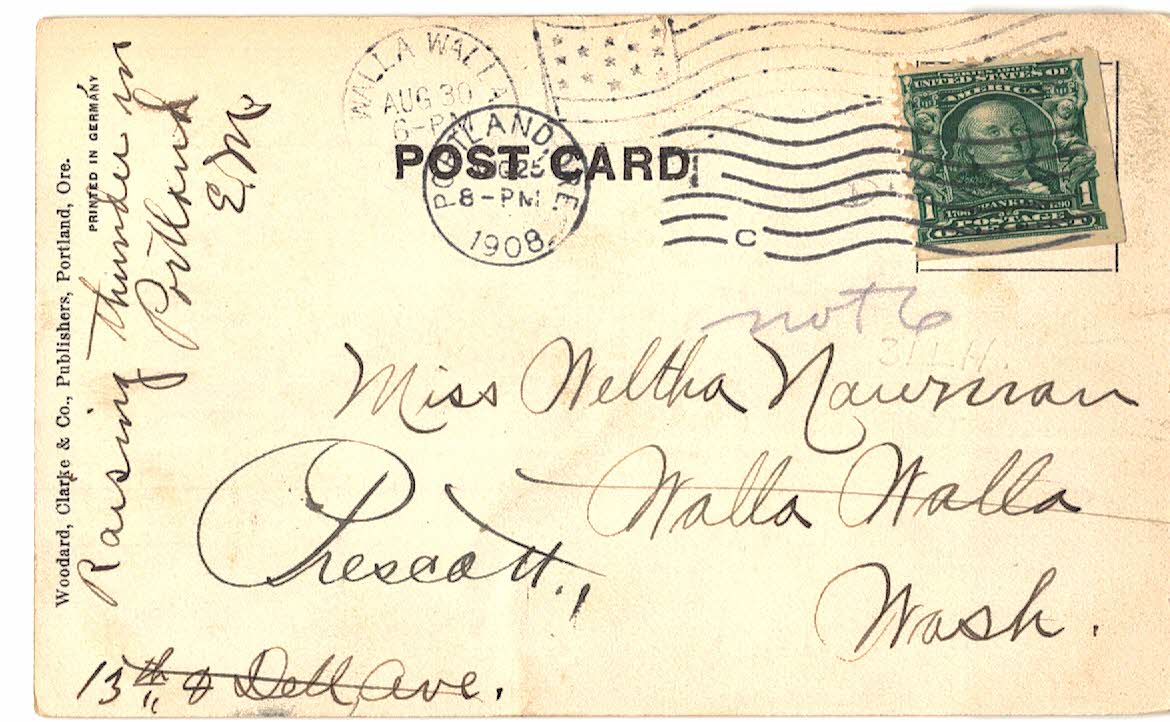 WALLA WALLA
AUG 30
6-PM
PORTLAND, ORE.
25
8-PM
1908
C
POST CARD
UNITED STATES OF
AMERICA
1 1706 FRANKLIN 1790 1
POSTAGE
ONE CENT
not 6
Miss Weltha Nawman
Walla Walla
Prescott,
Wash.
13th & Dell Ave.
Woodard, Clarke & Co., Publishers, Portland, Ore.
PRINTED IN GERMANY
Raising thunder in
Portland
EM